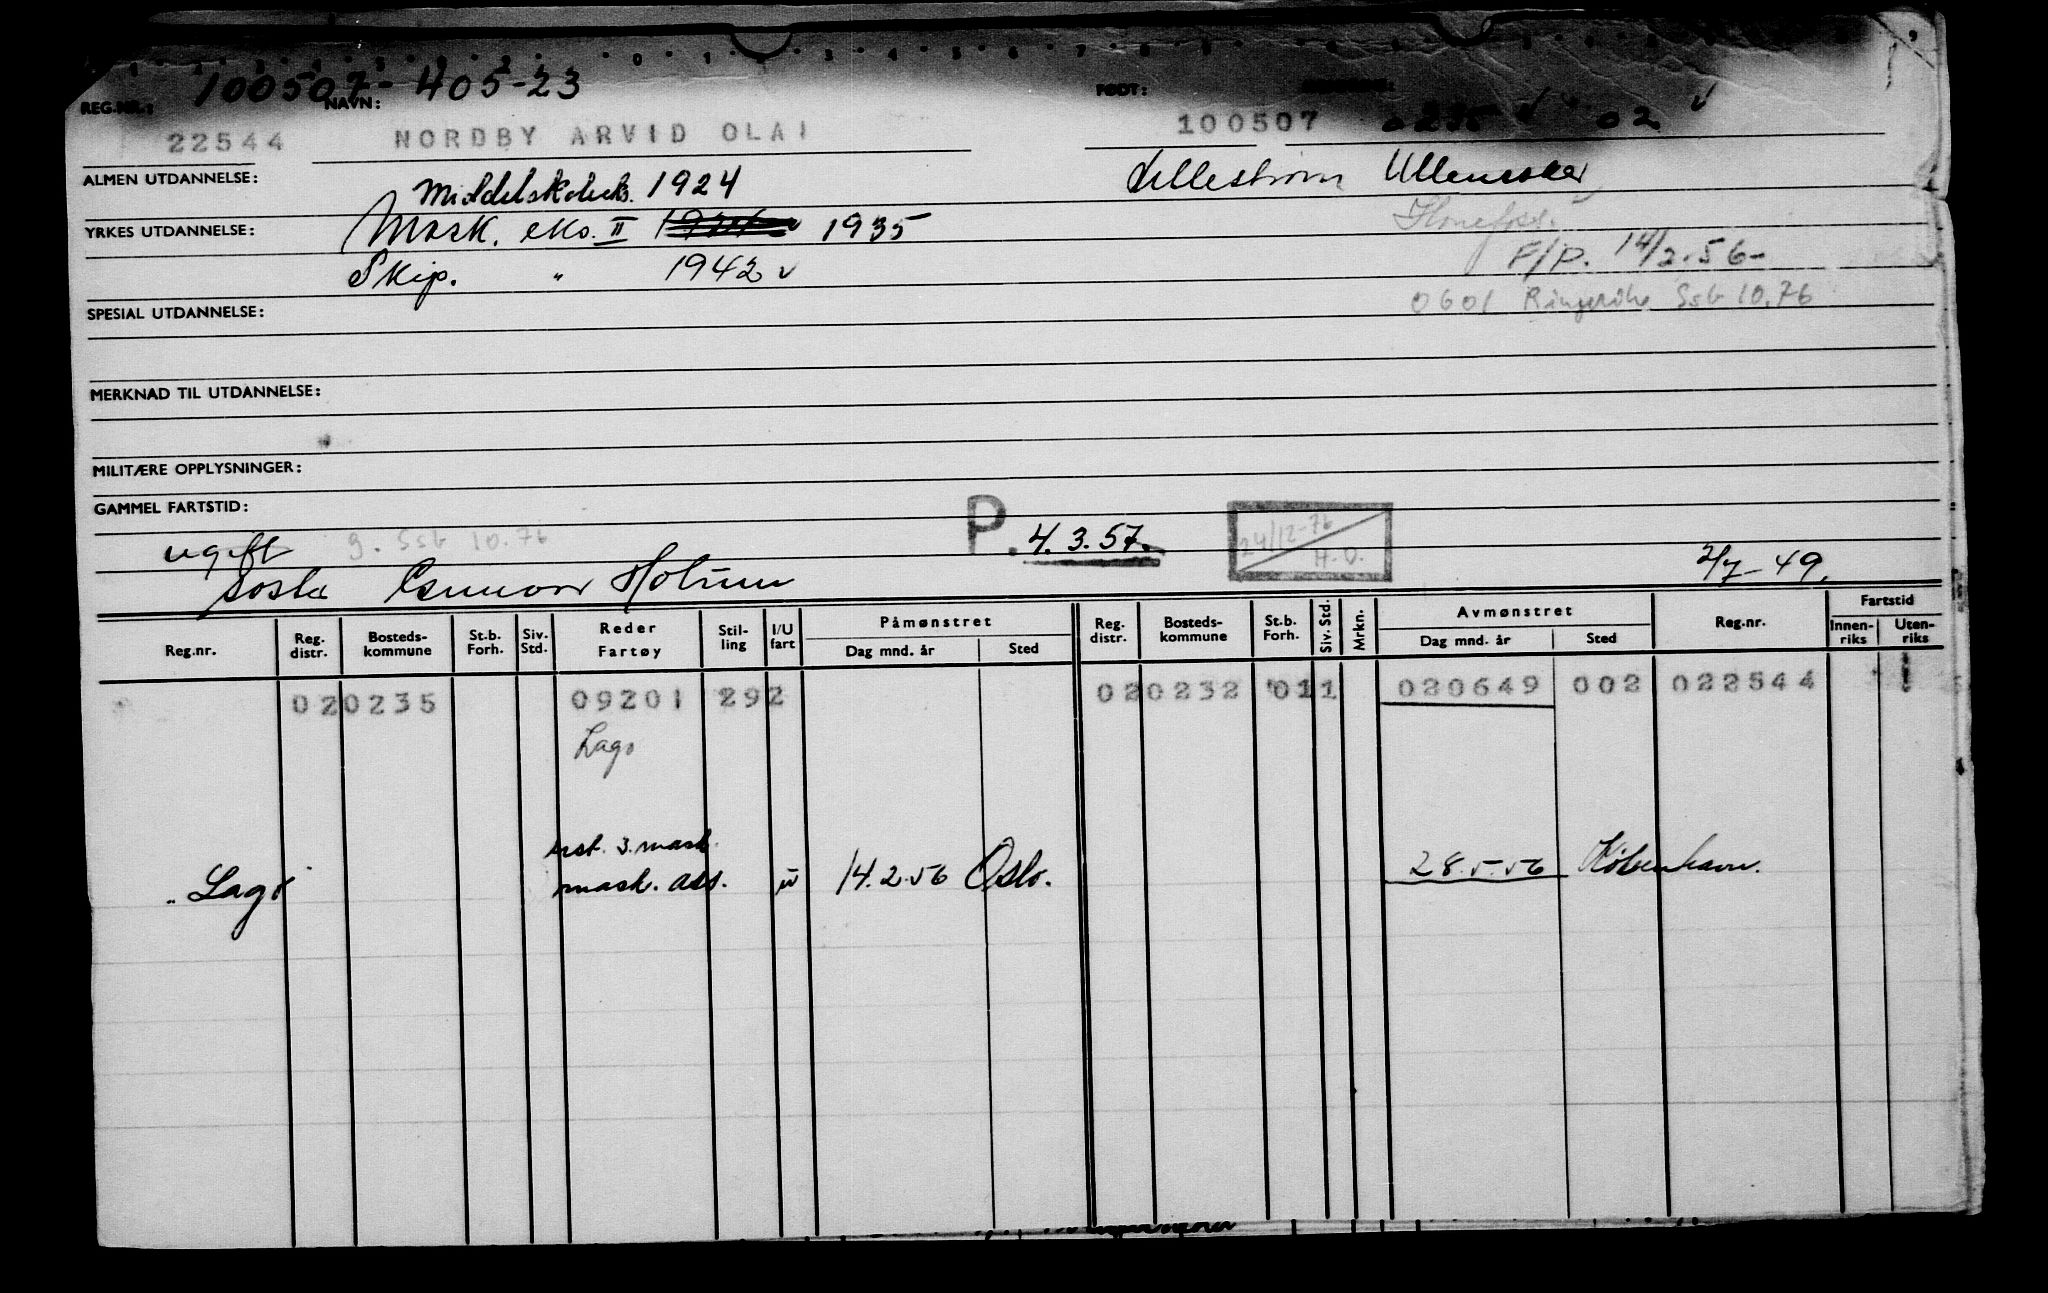 100507-405-23
REG.NR.: NAVN: FØDT:
22544 NORDBY ARVID OLAI 100507 0235 02
ALMEN UTDANNELSE: Middelskoleeks. 1924 Lillestrøm Ullensaker
YRKES UTDANNELSE: Mask. eks. II 1935 Hønefoss.
Skip. " 1942 F/P. 14/2.56-
SPESIAL UTDANNELSE: 0601 Ringerike Ssb 10.76
MERKNAD TIL UTDANNELSE:
MILITÆRE OPPLYSNINGER:
GAMMEL FARTSTID:
ugift g. Ssb 10.76 P. 4.3.57. 24/12-76 H.O.
søster Gunvor Holum 2/7-49.
Reg.nr. Reg. distr. Bosteds-kommune St.b. Forh. Siv. Std. Reder Fartøy Stil-ling I/U fart Påmønstret Dag mnd. år Sted Reg. distr. Bosteds-kommune St.b. Forh. Siv. Std. Mrkn. Avmønstret Dag mnd. år Sted Reg.nr. Fartstid Innen-riks Uten-riks
020235 09201 292 020232 011 020649 002 022544
Lago
3. mask.
"Lago" mask. ass. u 14.2.56 Oslo. 28.5.56 København.